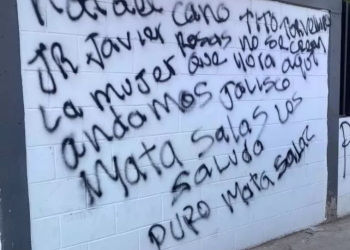 Rafael Cano TITO
JR Javier Rosas no se crean
La mujer que llora aqui
andamos Jalisco
Mata Salas los
Saluda
Puro Mata Salaz